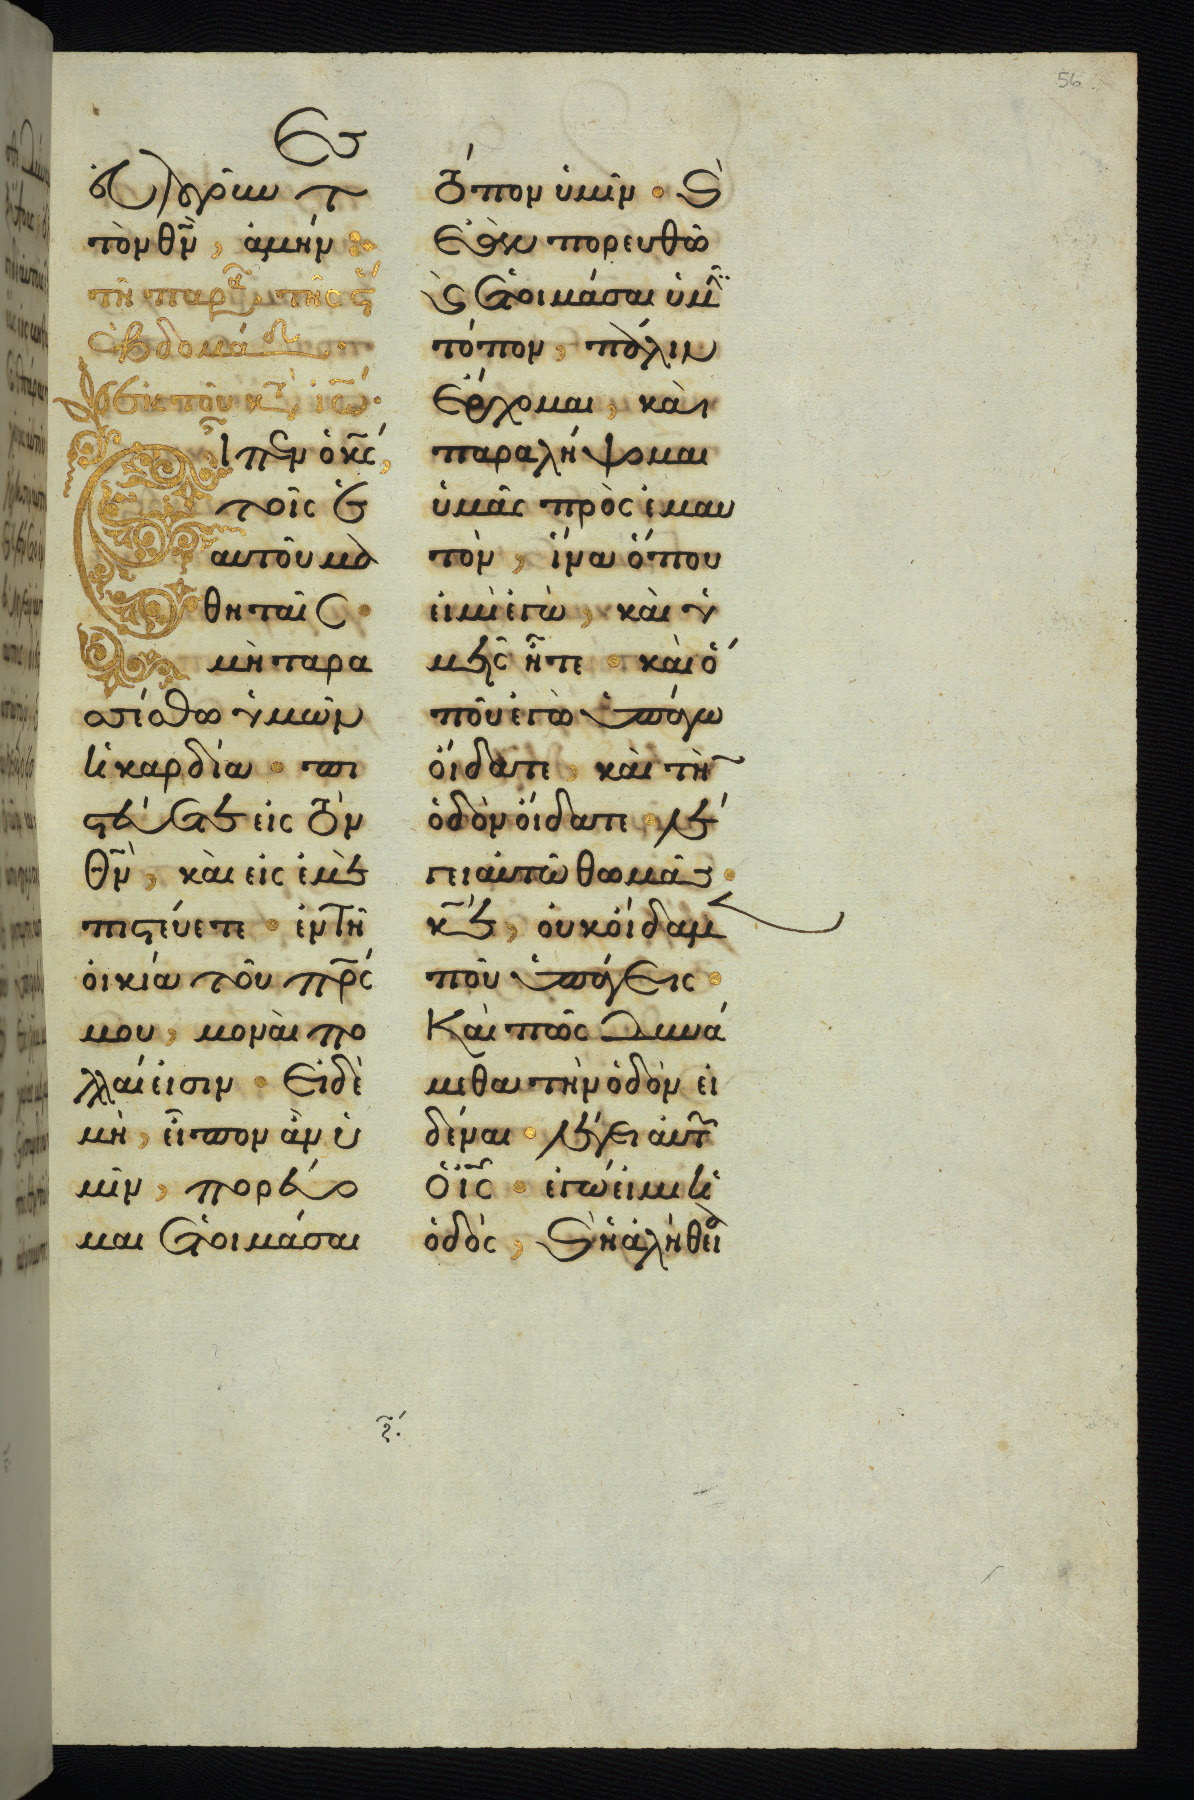 56
ες
εὐλογοῦν τ
τὸν θν̅, ἀμήν
τῇ παρα τῆς ς
ἑβδομάδος
ἐκ τοῦ κτ ἰω
Εἶπεν ὁ κς̅,
τοῖς ἑ
αυτοῦ μα
θηταῖς ·
μὴ ταρα
σσέσθω ὑμῶν
ἡ καρδία · πι
στεύετε εἰς τὸν
θν̅, καὶ εἰς ἐμὲ
πιστεύετε · ἐν τῇ
οἰκία τοῦ πρς̅
μου, μοναὶ πο
λλαί εἰσιν · εἰ δὲ
μὴ, εἶπον ἂν ὑ
μῖν, πορεύο
μαι ἑτοιμάσαι
τόπον ὑμῖν · καὶ
ἐὰν πορευθῶ
καὶ ἑτοιμάσαι ὑμῖν
τόπον, πάλιν
ἔρχομαι, καὶ
παραλήψομαι
ὑμᾶς πρὸς ἐμαυ
τὸν, ἵνα ὅπου
εἰμὶ ἐγὼ, καὶ ὑ
μεῖς ἦτε · καὶ ὅ
που ἐγὼ ὑπάγω
οἴδατε, καὶ τὴν
ὁδὸν οἴδατε · λέ
γει αὐτῶ θωμᾶς ·
κε̅, οὐκ οἴδαμεν
ποῦ ὑπάγεις ·
Καὶ πῶς δυνά
μεθα τὴν ὁδὸν εἰ
δέναι · λέγει αὐτῶ
ὁ ις̅ · ἐγώ εἰμι ἡ
ὁδὸς, καὶ ἡ ἀλήθεια
ζ